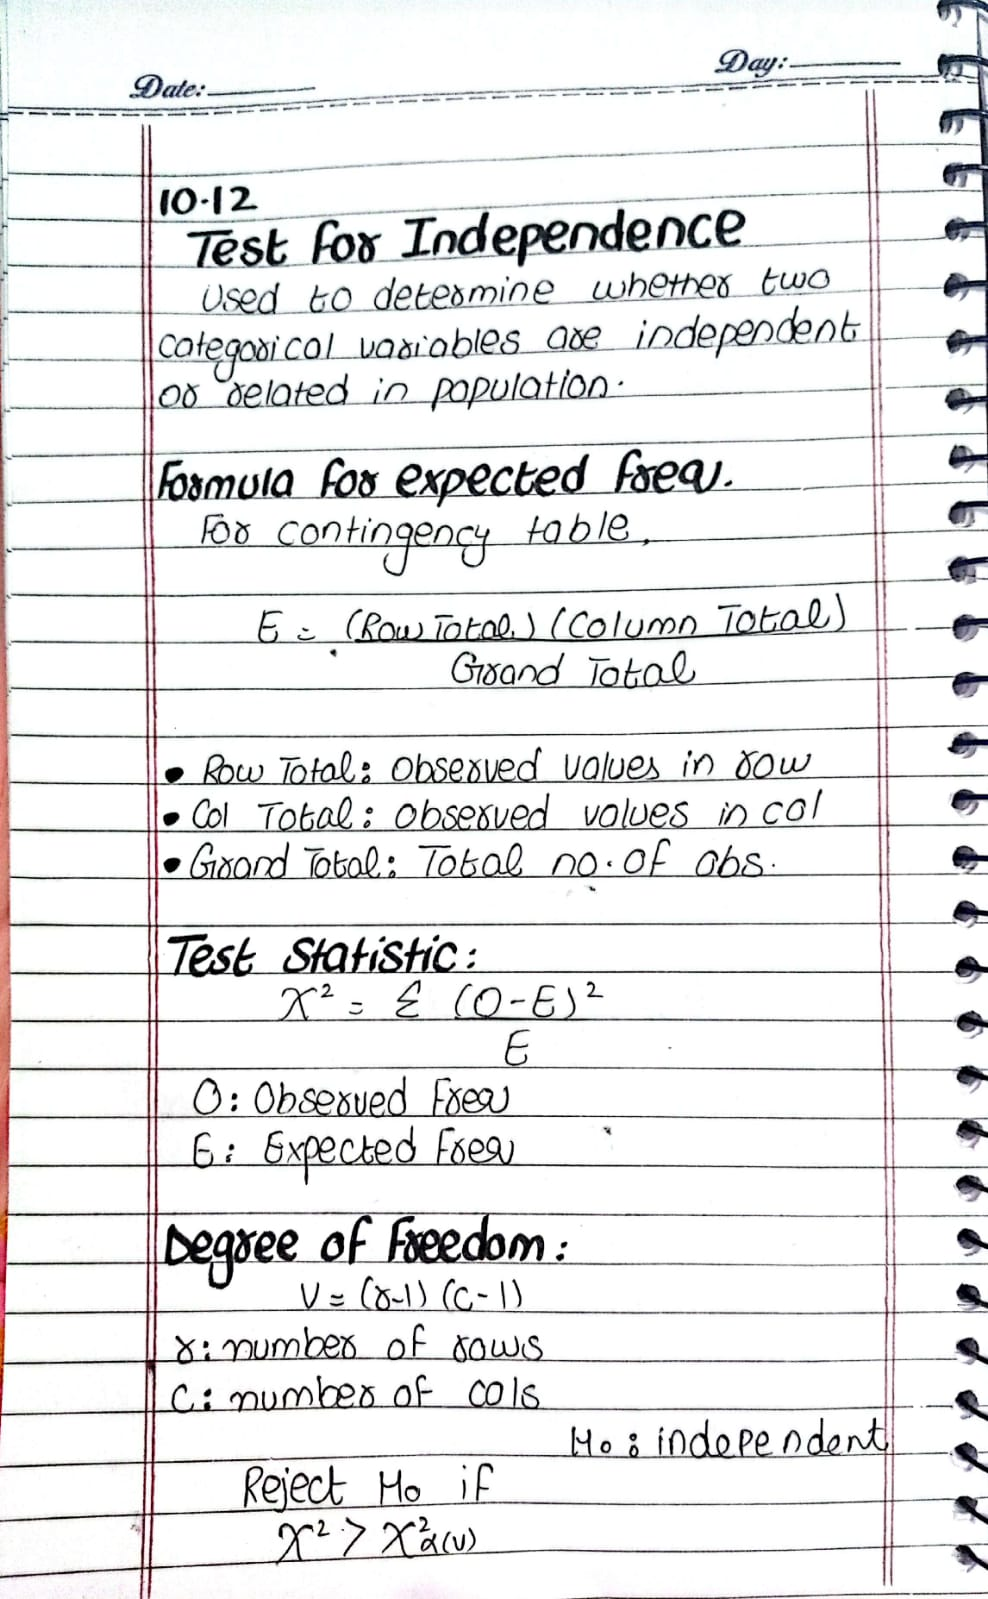 Date:
Day:
10.12
Test for Independence
Used to determine whether two
categorical variables are independent
or related in population.
Formula for expected freq.
For contingency table,
E = (Row Total) (Column Total)
Grand Total
• Row Total: Observed values in row
• Col Total: Observed values in col
• Grand Total: Total no. of obs.
Test Statistic:
χ² = Σ (O-E)²
E
O: Observed Freq
E: Expected Freq
Degree of Freedom:
V = (r-1) (c-1)
r: number of rows
C: number of cols
Ho: independent
Reject Ho if
χ² > χ²α(v)